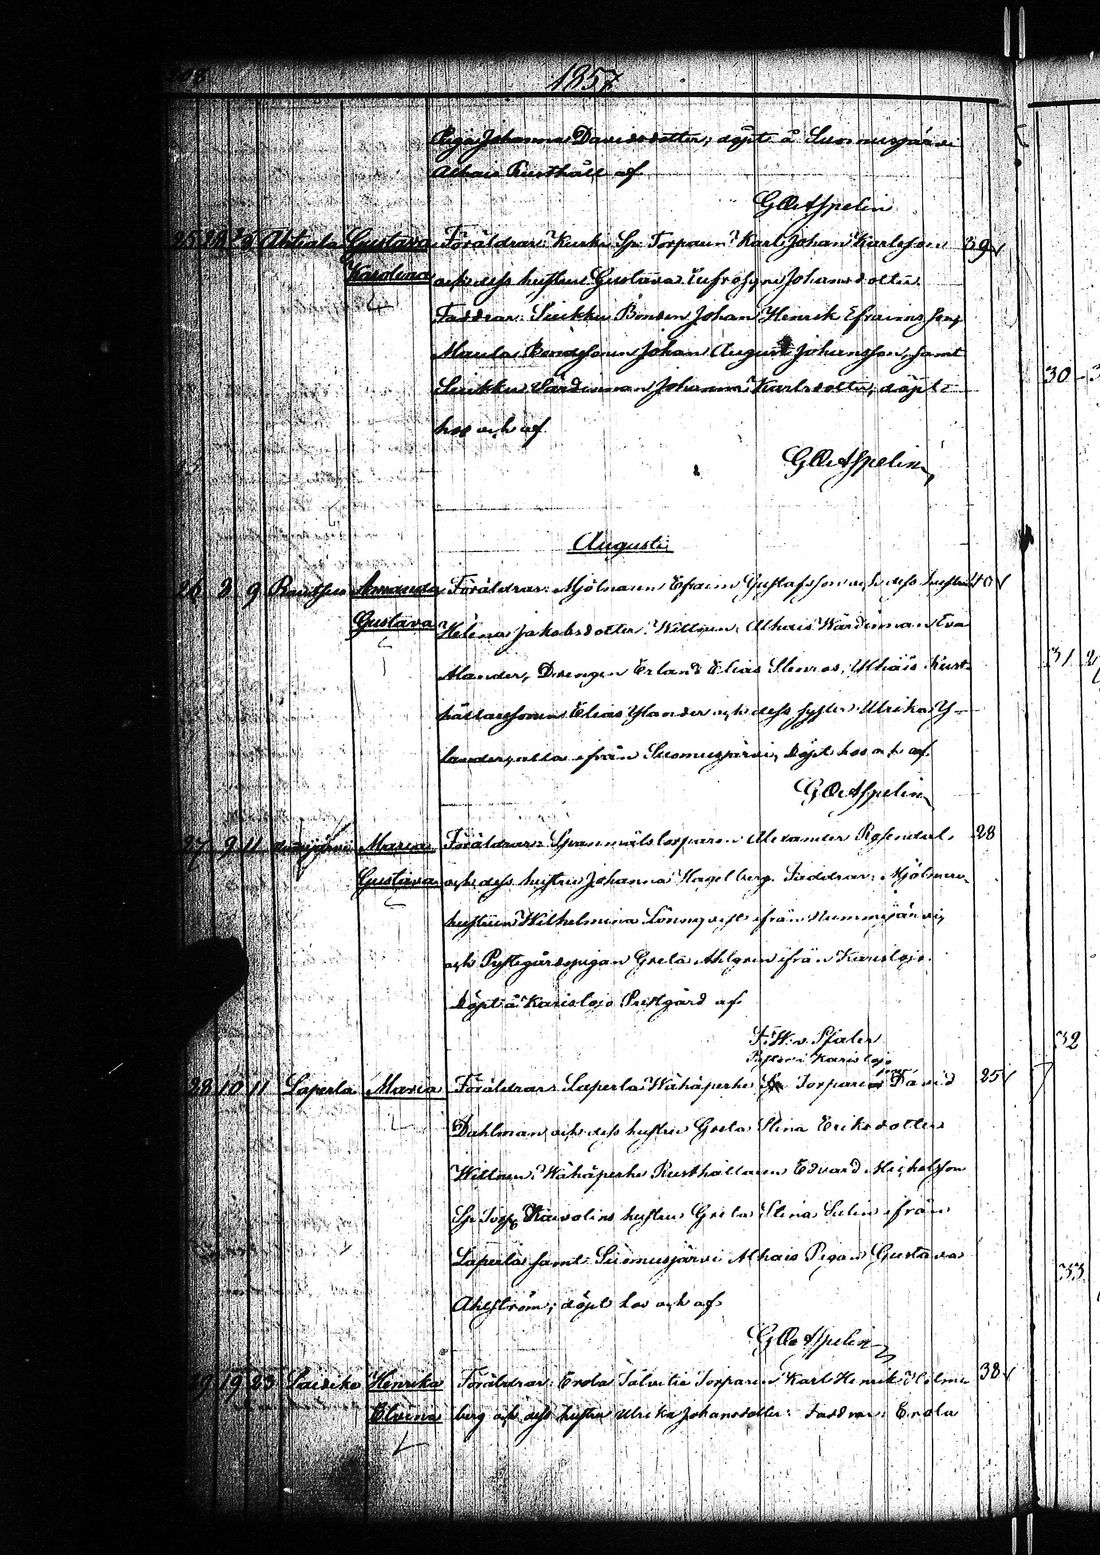 1857
Pigan Johanna Davidsdotter, döpt å Suomusjärvi
Alhais Rusthåll af
G Oe Aspelin
25 28 Ahtiala Gustava Föräldrar: Sp. Torparen Karl Johan Karlsson 39
Karolina och dess hustru Gustava Eufrosyne Johansdotter
Faddrar: Suikku Bonden Johan Henrik Efraims son
Maula Bondesonen Johan August Johansson, samt
Suikku Johanna Karlsdotter, döpt
hos och af
G Oe Aspelin
Augusti
26 8 9 Amanda Föräldrar: Mjölnaren Efraim Gustafsson och dess hustru 40
Gustava Helena Jakobsdotter. Wittnen: Alhais Wärdinnan Eva
Drengen Erland Elias Stenros, Alhais Rust-
hållaresonen Elias Ylander och dess syster Ulrika Y-
lander, alla ifrån Suomusjärvi, döpt hos och af
G Oe Aspelin
27 9 11 Maria Föräldrar: Spanmålstorparen Alexander Rosendal 28
Gustava och dess hustru Johanna Hagelberg. Faddrar: Mjölnare-
hustrun Wilhelmina Lönnqvist ifrån Nummijärvi,
och Prestgårdspigan Greta Ahlgren ifrån Karislojo.
döpt å Karislojo Prestgård af
F. W. v. Pfaler
Pastor i Karislojo
28 10 11 Laperla Maria Föräldrar: Laperla Wähäperhe Torparen David 25
Dahlman, och dess hustru Greta Stina Eriksdotter
Wittnen: Wähäperhe Rusthållaren Edvard Michelsson
Sp. Torp. hustru Greta Stina Sulin ifrån
Laperla samt Suomusjärvi Alhais Pigan Gustava
Ahlström, döpt hos och af
G Oe Aspelin
29 19 23 Henrika Föräldrar: Erola Torparen Karl Henrik Holm- 38
Elvina berg och dess hustru Ulrika Johansdotter: Faddrar: Erola
30
31
32
33